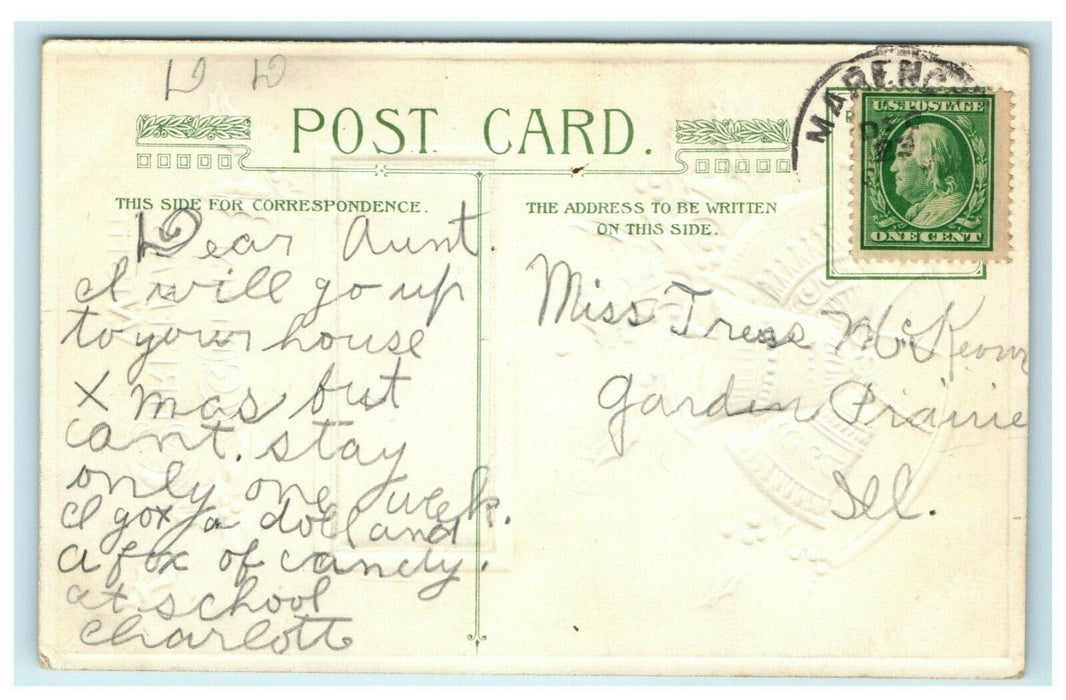 D D
POST CARD.
THIS SIDE FOR CORRESPONDENCE.
THE ADDRESS TO BE WRITTEN
ON THIS SIDE.
MARENGO
DEC
U.S. POSTAGE
ONE CENT
Dear Aunt.
I will go up
to your house
X mas but
cant. stay
only one week.
I got a doll and
a box of candy.
at school
Charlott
Miss Tress McKeown
Garden Prairie
Ill.